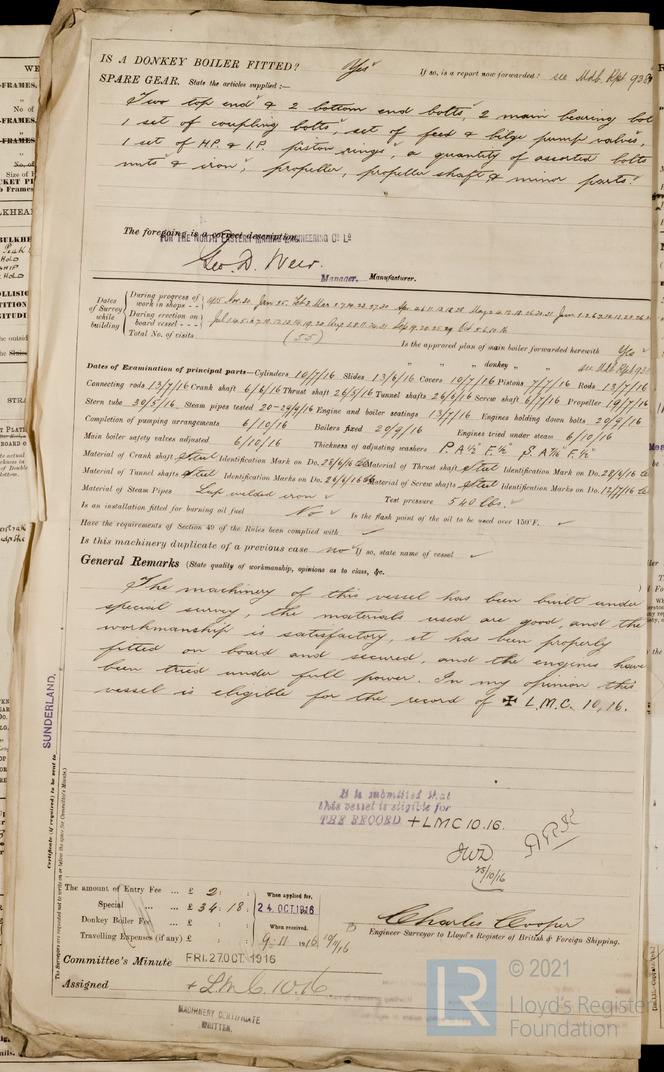 IS A DONKEY BOILER FITTED? Yes If so, is a report now forwarded? see Mdb. Rpt 938
SPARE GEAR. State the articles supplied :—
Two top end & 2 bottom end bolts, 2 main bearing bol
1 set of coupling bolts, set of feed & bilge pump valves,
1 set of H.P. & I.P. piston rings, a quantity of assorted bolts
nuts & iron, propeller, propeller shaft & minor parts.
The foregoing is a correct description
FOR THE NORTH EASTERN MARINE ENGINEERING Co Ld
Geo. D. Weir.
Manager. Manufacturer.
Dates of Survey while building
During progress of work in shops - -
During erection on board vessel - - -
Total No. of visits (55)
Is the approved plan of main boiler forwarded herewith Yes
" " " donkey " " see Mdb Rpt 938
Dates of Examination of principal parts—Cylinders 10/7/16 Slides 13/6/16 Covers 10/7/16 Pistons 7/7/16 Rods 13/7/16
Connecting rods 13/7/16 Crank shaft 6/6/16 Thrust shaft 26/5/16 Tunnel shafts 26/6/16 Screw shaft 6/7/16 Propeller 19/7/16
Stern tube 30/5/16 Steam pipes tested 20-29/9/16 Engine and boiler seatings 13/7/16 Engines holding down bolts 20/9/16
Completion of pumping arrangements 6/10/16 Boilers fixed 20/9/16 Engines tried under steam 6/10/16
Main boiler safety valves adjusted 6/10/16 Thickness of adjusting washers
Material of Crank shaft Steel Identification Mark on Do. Material of Thrust shaft Steel Identification Mark on Do.
Material of Tunnel shafts Steel Identification Marks on Do. Material of Screw shafts Steel Identification Marks on Do.
Material of Steam Pipes Lap welded iron Test pressure 540 lbs.
Is an installation fitted for burning oil fuel No Is the flash point of the oil to be used over 150°F.
Have the requirements of Section 49 of the Rules been complied with
Is this machinery duplicate of a previous case no If so, state name of vessel
General Remarks (State quality of workmanship, opinions as to class, &c.
The machinery of this vessel has been built under
special survey, the materials used are good, and the
workmanship is satisfactory, it has been properly
fitted on board and secured, and the engines have
been tried under full power. In my opinion this
vessel is eligible for the record of ✠ L.M.C. 10,16.
SUNDERLAND.
Certificate (if required) to be sent to
(The Surveyors are requested not to write on or below the space for Committee's Minute.)
It is submitted that
this vessel is eligible for
THE RECORD + LMC 10.16.
JWD
25/10/16
The amount of Entry Fee ... £ 2 : :
Special ... £ 34 : 18 :
Donkey Boiler Fee ... £ : :
Travelling Expenses (if any) £ : :
When applied for,
24 OCT 1916
When received,
9.11.1916
Charles Cooper
Engineer Surveyor to Lloyd's Register of British & Foreign Shipping.
Committee's Minute FRI. 27 OCT. 1916
Assigned + L.M.C. 10.16
MACHINERY CERTIFICATE
WRITTEN.
LR © 2021
Lloyd's Register
Foundation